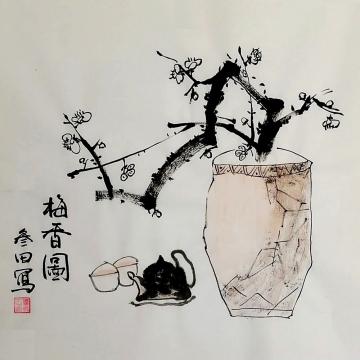 梅香圖
叄田寫